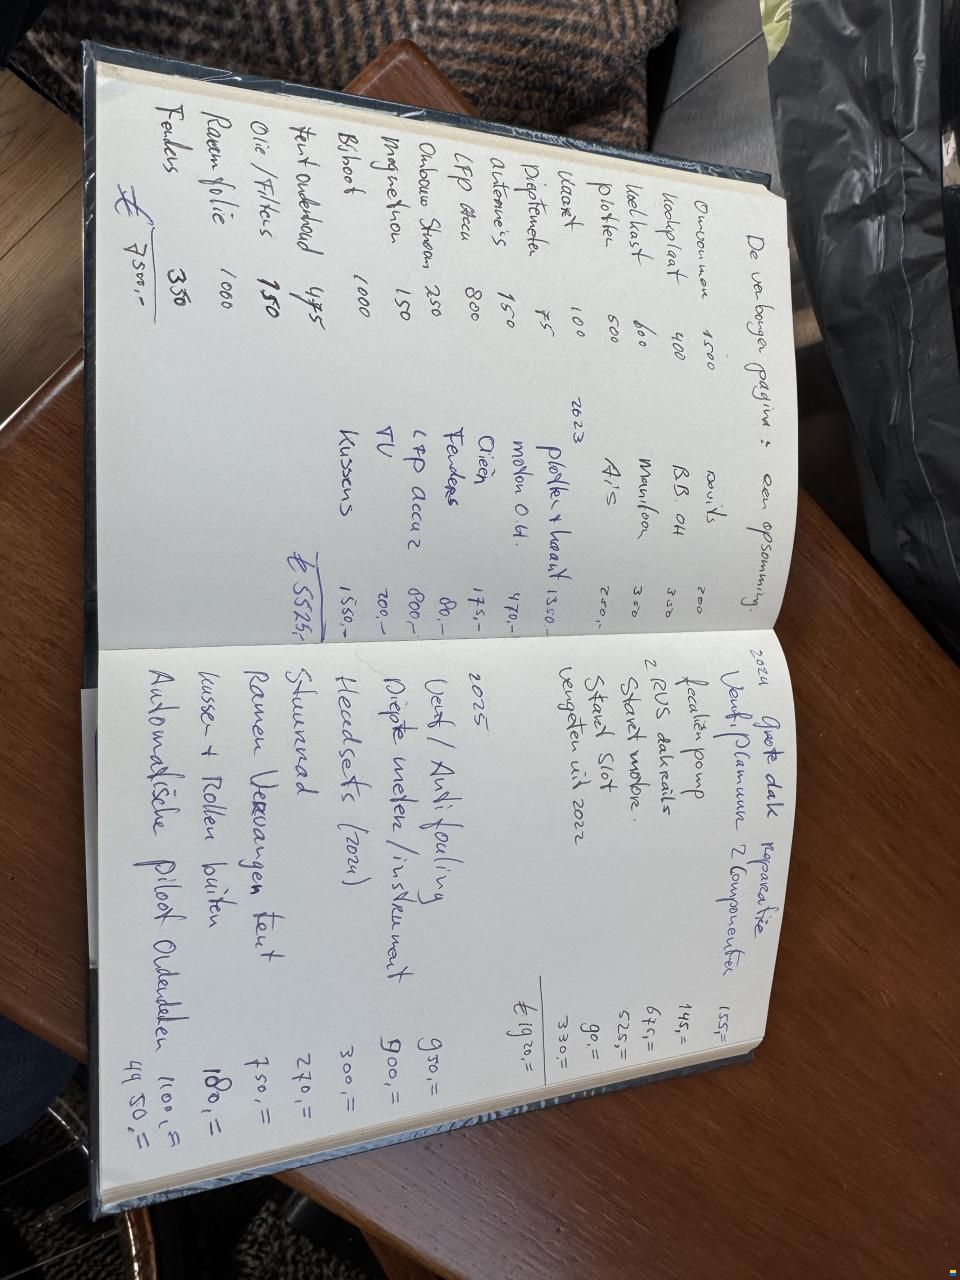 De verborgen pagina : een opsomming.
Omvormen 1500
kookplaat 400
koelkast 600
plotter 500
kaart 100
Dieptemeter 75
antenne's 150
LFP Accu 800
Ombouw Stroom 250
magnetron 150
Bijboot 1000
tent onderhoud 475
Olie / Filters 150
Raam folie 1000
Fenders 350
€ 7500,-
davits 200
B.B. OH 350
Manifoon 350
Ais 250,-
2023
plotter + kaart 1350,-
motor O.H. 470,-
Olieën 175,-
Fenders 80,-
LFP accu 2 800,-
TV 200,-
kussens 1550,-
€ 5525,-
grote dak reparatie
2024
Verf, plamuur 2 Componenten 155,=
fecaliën pomp 145,=
2 RVS dakrails 675,=
Start motor. 525,=
Start Slot 90,=
vergeten uit 2022 330,=
€ 1920,=
2025
Verf / Antifouling 950,=
Diepte meter / instrument 900,=
Headsets (2024) 300,=
Stuurrad 270,=
Ramen Vervangen tent 750,=
kussen + Rollen buiten 180,=
Automatische piloot Onderdelen 1100,=
4450,=